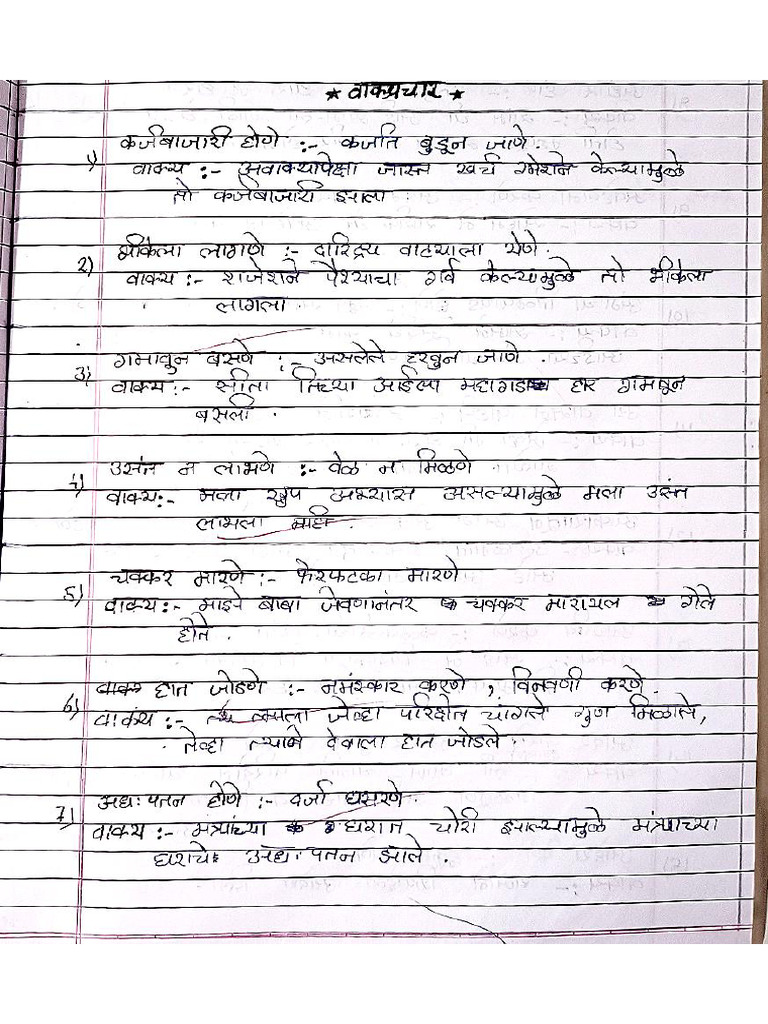 ★ वाक्प्रचार ★
कर्जबाजारी होणे :- कर्जात बुडून जाणे.
1) वाक्य :- अवाक्यापेक्षा जास्त खर्च रमेशने केल्यामुळे
तो कर्जबाजारी झाला.
2) भीकेला लागणे :- दारिद्र्य वाट्याला येणे.
वाक्य :- राजेशने पैश्याचा गर्व केल्यामुळे तो भीकेला
लागला.
3) गमावून बसणे :- असलेले हरवून जाणे.
वाक्य :- सीता तिच्या आईला महागडा हार गमवून
बसली.
4) उसंत न लाभणे :- वेळ न मिळणे.
वाक्य:- मला खुप अभ्यास असल्यामुळे मला उसंत
लाभला नाही.
5) चक्कर मारणे :- फेरफटका मारणे.
वाक्य :- माझे बाबा जेवणानंतर चक्कर मारायल गेले
होते.
6) हात जोडणे :- नमंस्कार करणे, विनवणी करणे.
वाकंय :- त्याला जेव्हा परिक्षेत चांगले गुण मिळाले,
तेव्हा त्याने देवाला हात जोडले.
7) अधःपतन होणे :- दर्जा घसरणे.
वाक्य :- मंत्र्यांच्या घरात चोरी झाल्यामुळे मंत्र्याच्या
घराचे अधःपतन झाले.